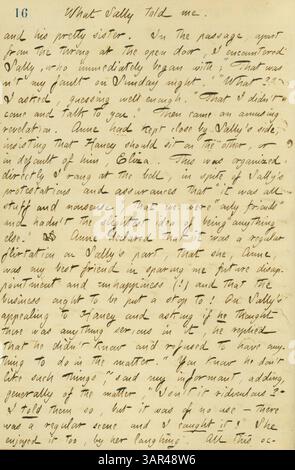 16 What Sally told me.
and his pretty sister. In the passage apart
from the throng at the open door, I encountered
Sally, who immediately began with, "That was-
n't my fault on Sunday night." "What?"
I asked, guessing well enough. "That I didn't
come and talk to you." Then came an amusing
revelation. Anne had kept close by Sally's side,
insisting that Haney should sit on the other, or
in default of him, Eliza. This was organized
directly I rang at the bell, in spite of Sally's
protestations and assurances that "it was all
stuff and nonsense, that we were only friends
and hadn't the slightest idea of being anything
else." Anne declared that it was a regular
flirtation on Sally's part, that she, Anne,
was my best friend in sparing me future disap-
pointment and unhappiness (!) and that the
business ought to be put a stop to! On Sally's
appealing to Haney and asking if he thought
there was anything serious in it, he replied
that he didn't know and refused to have any
thing to do in the matter. "You know he don't
like such things," said my informant, adding,
generally of the matter, "Isn't it ridiculous?
I told them so, but it was of no use — there
was a regular scene and I caught it"! She
enjoyed it too, by her laughing. All this oc-
alamy
Image ID: 3AR48W6
www.alamy.com